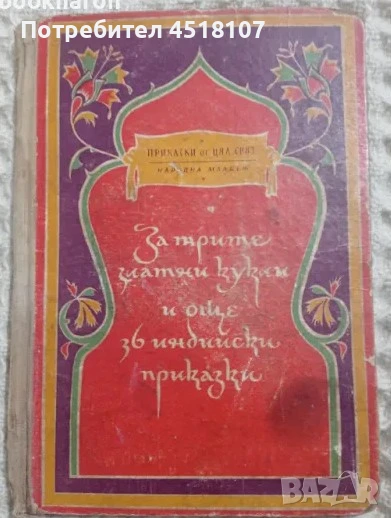 bookparon
Потребител 4518107
ПРИКАЗКИ ОТ ЦЯЛ СВЯТ
НАРОДНА МЛАДЕЖ
За трите
златни кукли
и още
36 индийски
приказки
BAZAR